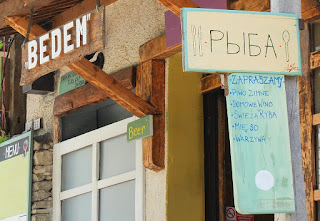 „BEDEM"
РЫБА
ZAPRASZAMY
•PIWO ZIMNE
•DOMOWE WINO
•ŚWIEŻA RYBA
•MIĘSO
•WARZYWA
Beer
MENU